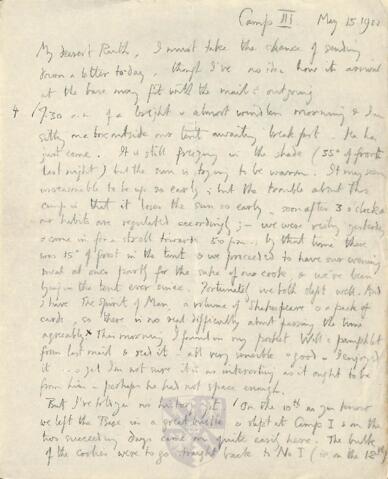 Camp III May 15 192
My dearest Ruth, I must take the chance of sending
down a letter to-day, though I've no idea how its arrival
at the base may fit with the mails outgoing
7.30 a.m. of a bright & almost windless morning & I'm
sitting on a box outside our tent awaiting breakfast. He has
just come. It is still freezing in the shade (35° of frost
last night) but the sun is trying to be warm. It may seem
unreasonable to be up so early; but the trouble about this
camp is that it loses the sun so early, soon after 3 o'clock &
our habits are regulated accordingly; we were yesterday
& came in for a stroll towards 5.0 p.m. by that time there
was 15° of frost in the tent & we proceeded to have our evening
meal at once partly for the sake of our cook & we've been
lying in the tent ever since. Fortunately we both slept well. And
I have The Spirit of Man, a volume of Shakespeare & a pack of
cards, so there is no real difficulty about passing the time
agreeably. This morning I found in my pocket Will's pamphlet
from last mail & read it all very sensible & good & I enjoyed
it ... yet I'm not sure it is as interesting as it ought to be
from him perhaps he had not space enough.
But I've to On the 10th as you know
we left the Base in a great & slept at Camp I & on the
two succeeding days came on quite easily here. The bulk
of the coolies were to go straight back to No I (i.e. on the 12th)